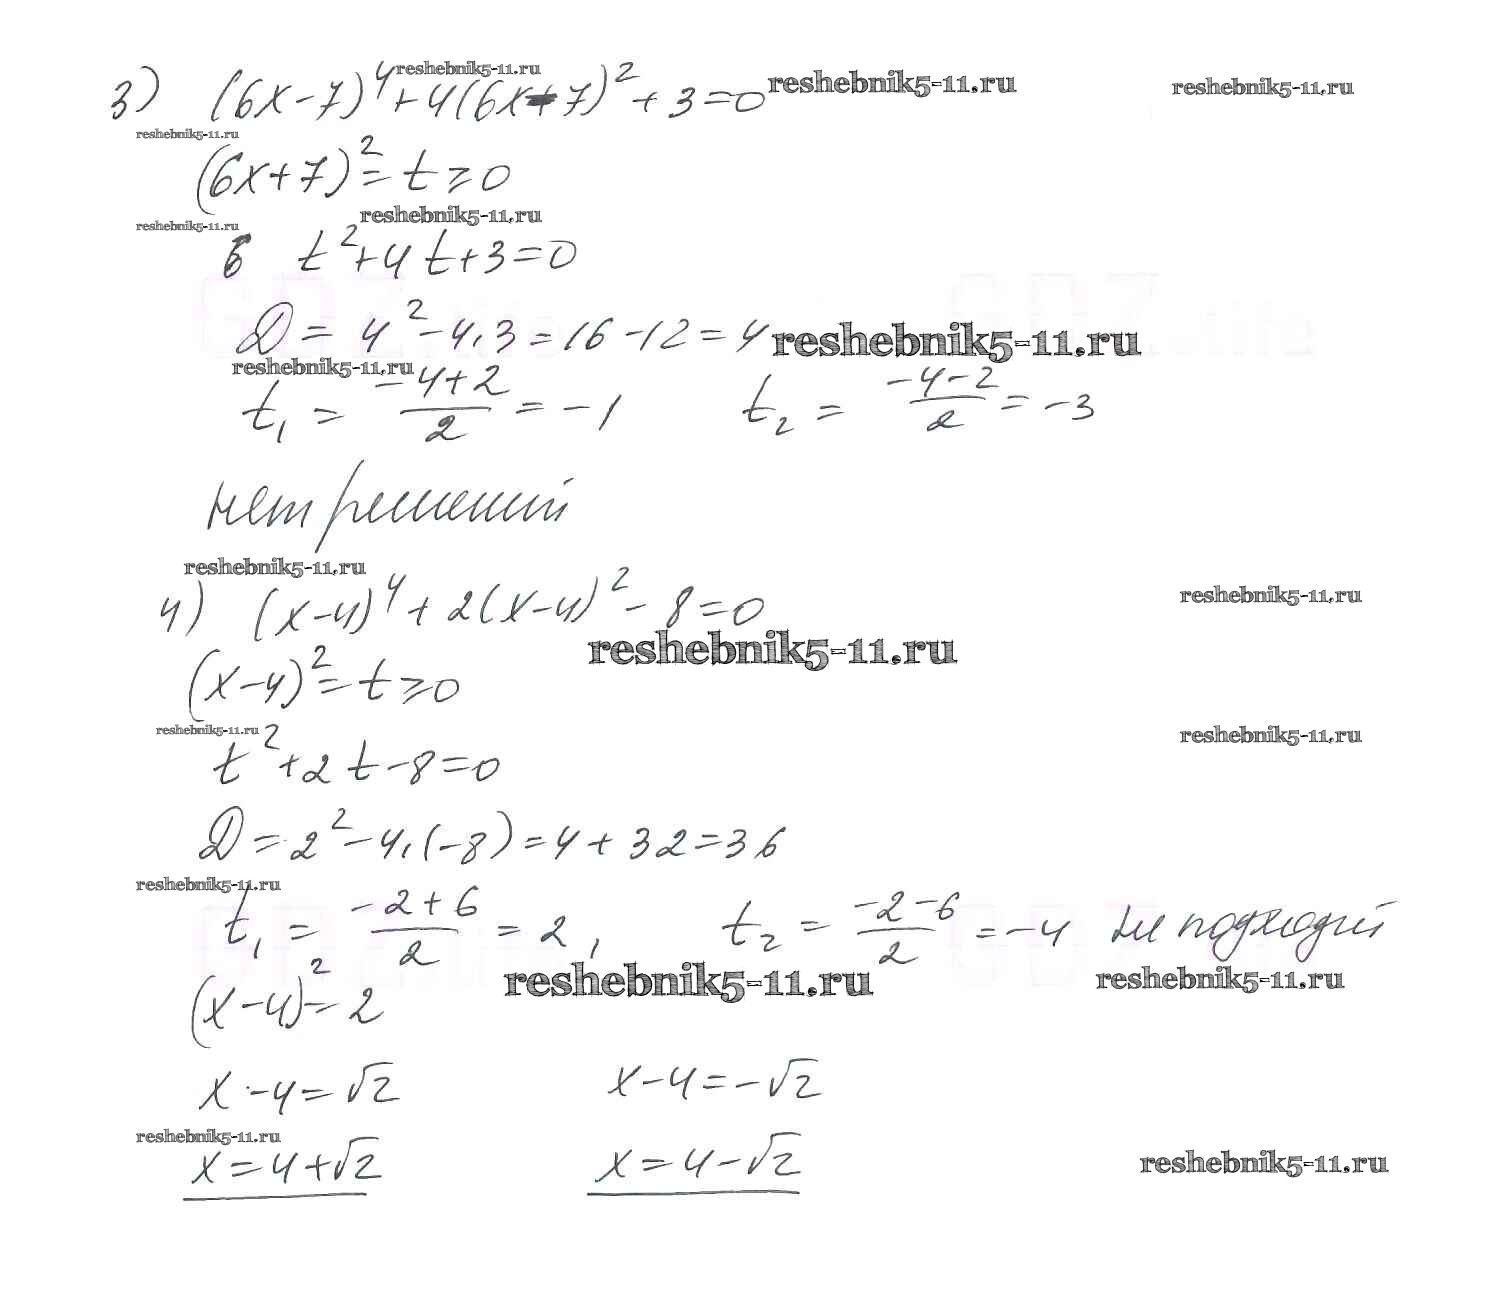 reshebnik5-11.ru
3) (6x-7)⁴+4(6x-7)²+3=0 reshebnik5-11.ru reshebnik5-11.ru
reshebnik5-11.ru
(6x+7)²=t⩾0
reshebnik5-11.ru reshebnik5-11.ru
t²+4t+3=0
D=4²-4·3=16-12=4 reshebnik5-11.ru
reshebnik5-11.ru
t₁=(-4+2)/2=-1 t₂=(-4-2)/2=-3
нет решений
reshebnik5-11.ru
4) (x-4)⁴+2(x-4)²-8=0 reshebnik5-11.ru
reshebnik5-11.ru
(x-4)²=t⩾0
reshebnik5-11.ru reshebnik5-11.ru
t²+2t-8=0
D=2²-4·(-8)=4+32=36
reshebnik5-11.ru
t₁=(-2+6)/2=2, t₂=(-2-6)/2=-4 не подходит
reshebnik5-11.ru reshebnik5-11.ru
(x-4)²=2
x-4=√2 x-4=-√2
reshebnik5-11.ru
x=4+√2 x=4-√2 reshebnik5-11.ru